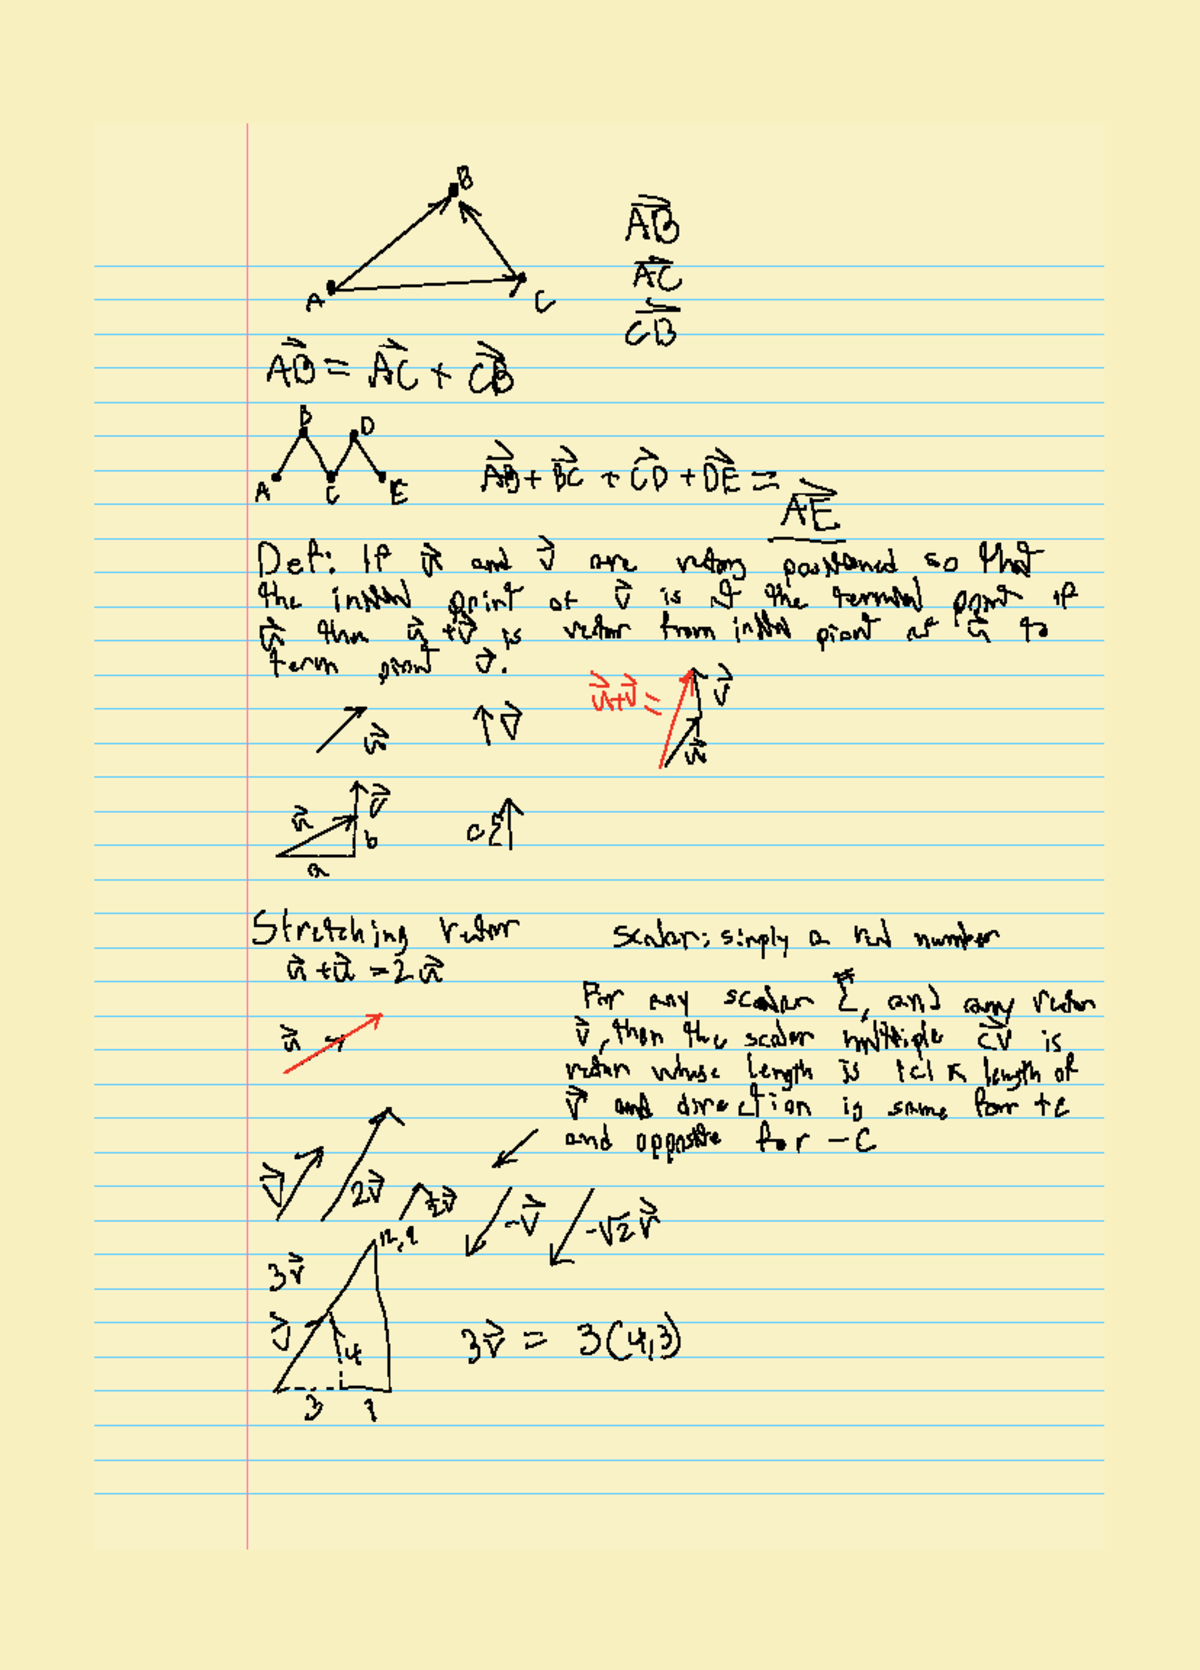 B
A
C
AB
AC
CB
AB = AC + CB
B
D
A
C
E
AB + BC + CD + DE =
AE
Def: If u and v are vectors positioned so that
the initial point of v is at the terminal point of
u then u + v is vector from initial point of u to
term point v.
u
v
u+v =
v
u
u
v
b
a
c {
Stretching vector
u + u = 2u
u
scalar: simply a real number
For any scalar c, and any vector
v, then the scalar multiple cv is
vector whose length is |c| x length of
v and direction is same for +c
and opposite for -c
v
2v
½v
-v
-√2 v
12, 9
3v
v
4
3
3v = 3(4,3)